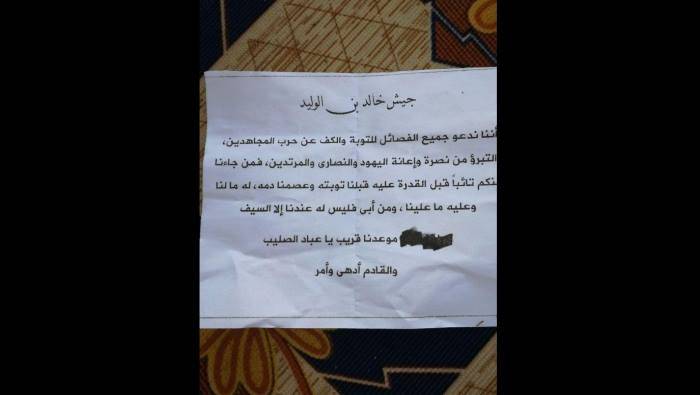 جيش خالد بن الوليد
أننا ندعو جميع الفصائل للتوبة والكف عن حرب المجاهدين،
التبرؤ من نصرة وإعانة اليهود والنصارى والمرتدين، فمن جاءنا
نكم تائباً قبل القدرة عليه قبلنا توبته وعصمنا دمه، له ما لنا
وعليه ما علينا ، ومن أبى فليس له عندنا إلا السيف
موعدنا قريب يا عباد الصليب
والقادم أدهى وأمر